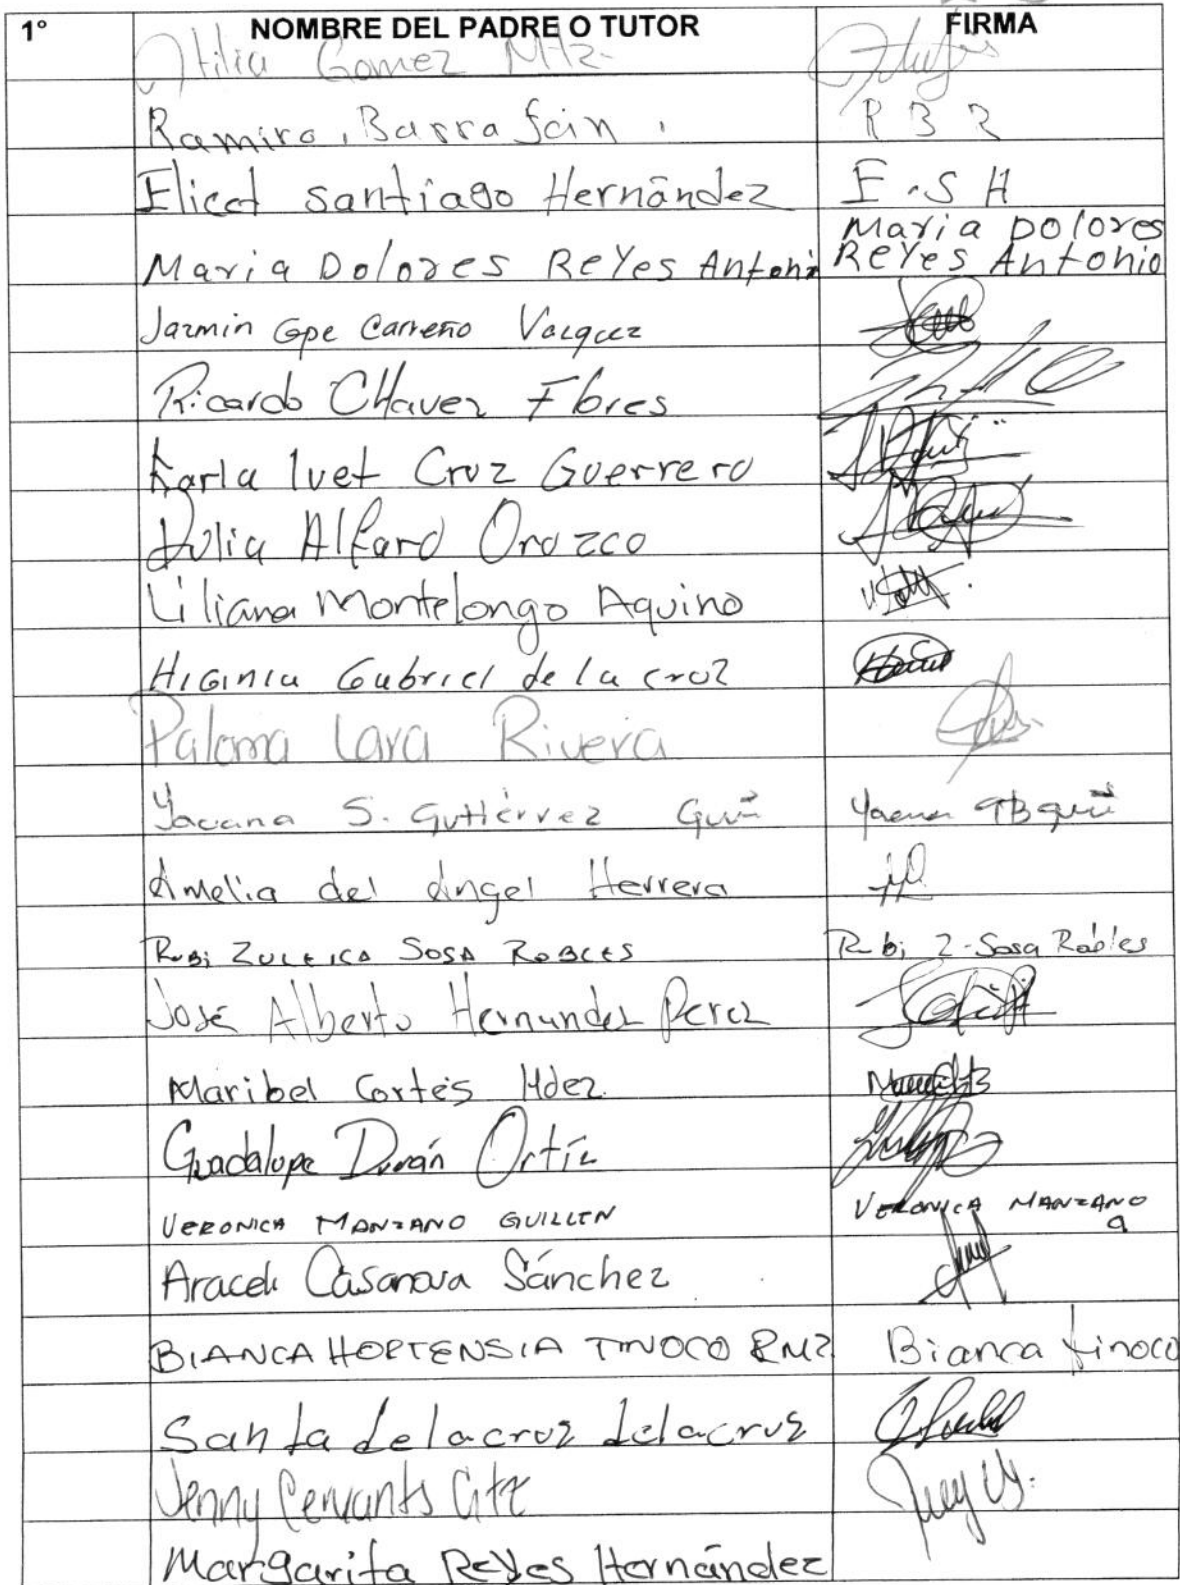 1° NOMBRE DEL PADRE O TUTOR FIRMA
Otilia Gomez Mtz-
Ramiro, Barra fain. R B R
Elicet santiago Hernández E.S H
Maria Dolores
Maria Dolores ReYes Antoni ReYes Antonio
Jazmin Gpe Carreño Vazquez
Ricardo CHavez Flores
Karla Ivet Cruz Guerrero
Julia Alfaro Orozco
Liliana Montelongo Aquino
HIGINIa Gabriel de la cruz
Paloma Lara Rivera
Yacana S. Gutiérrez
Amelia del Angel Herrera
RUBi ZULEICA SOSA ROBLES Rubi Z-Sosa Robles
José Alberto Hernandez Perez
Maribel Cortés Hdez.
Guadalupe Durán Ortíz
VERONICA MANZANO GUILLEN VERONICA MANZANO
G
Araceli Casanova Sánchez
BIANCA HORTENSIA TINOCO RMZ Bianca tinoco
Santa delacruz delacruz
Jenny Cervants
Margarita Reyes Hernández